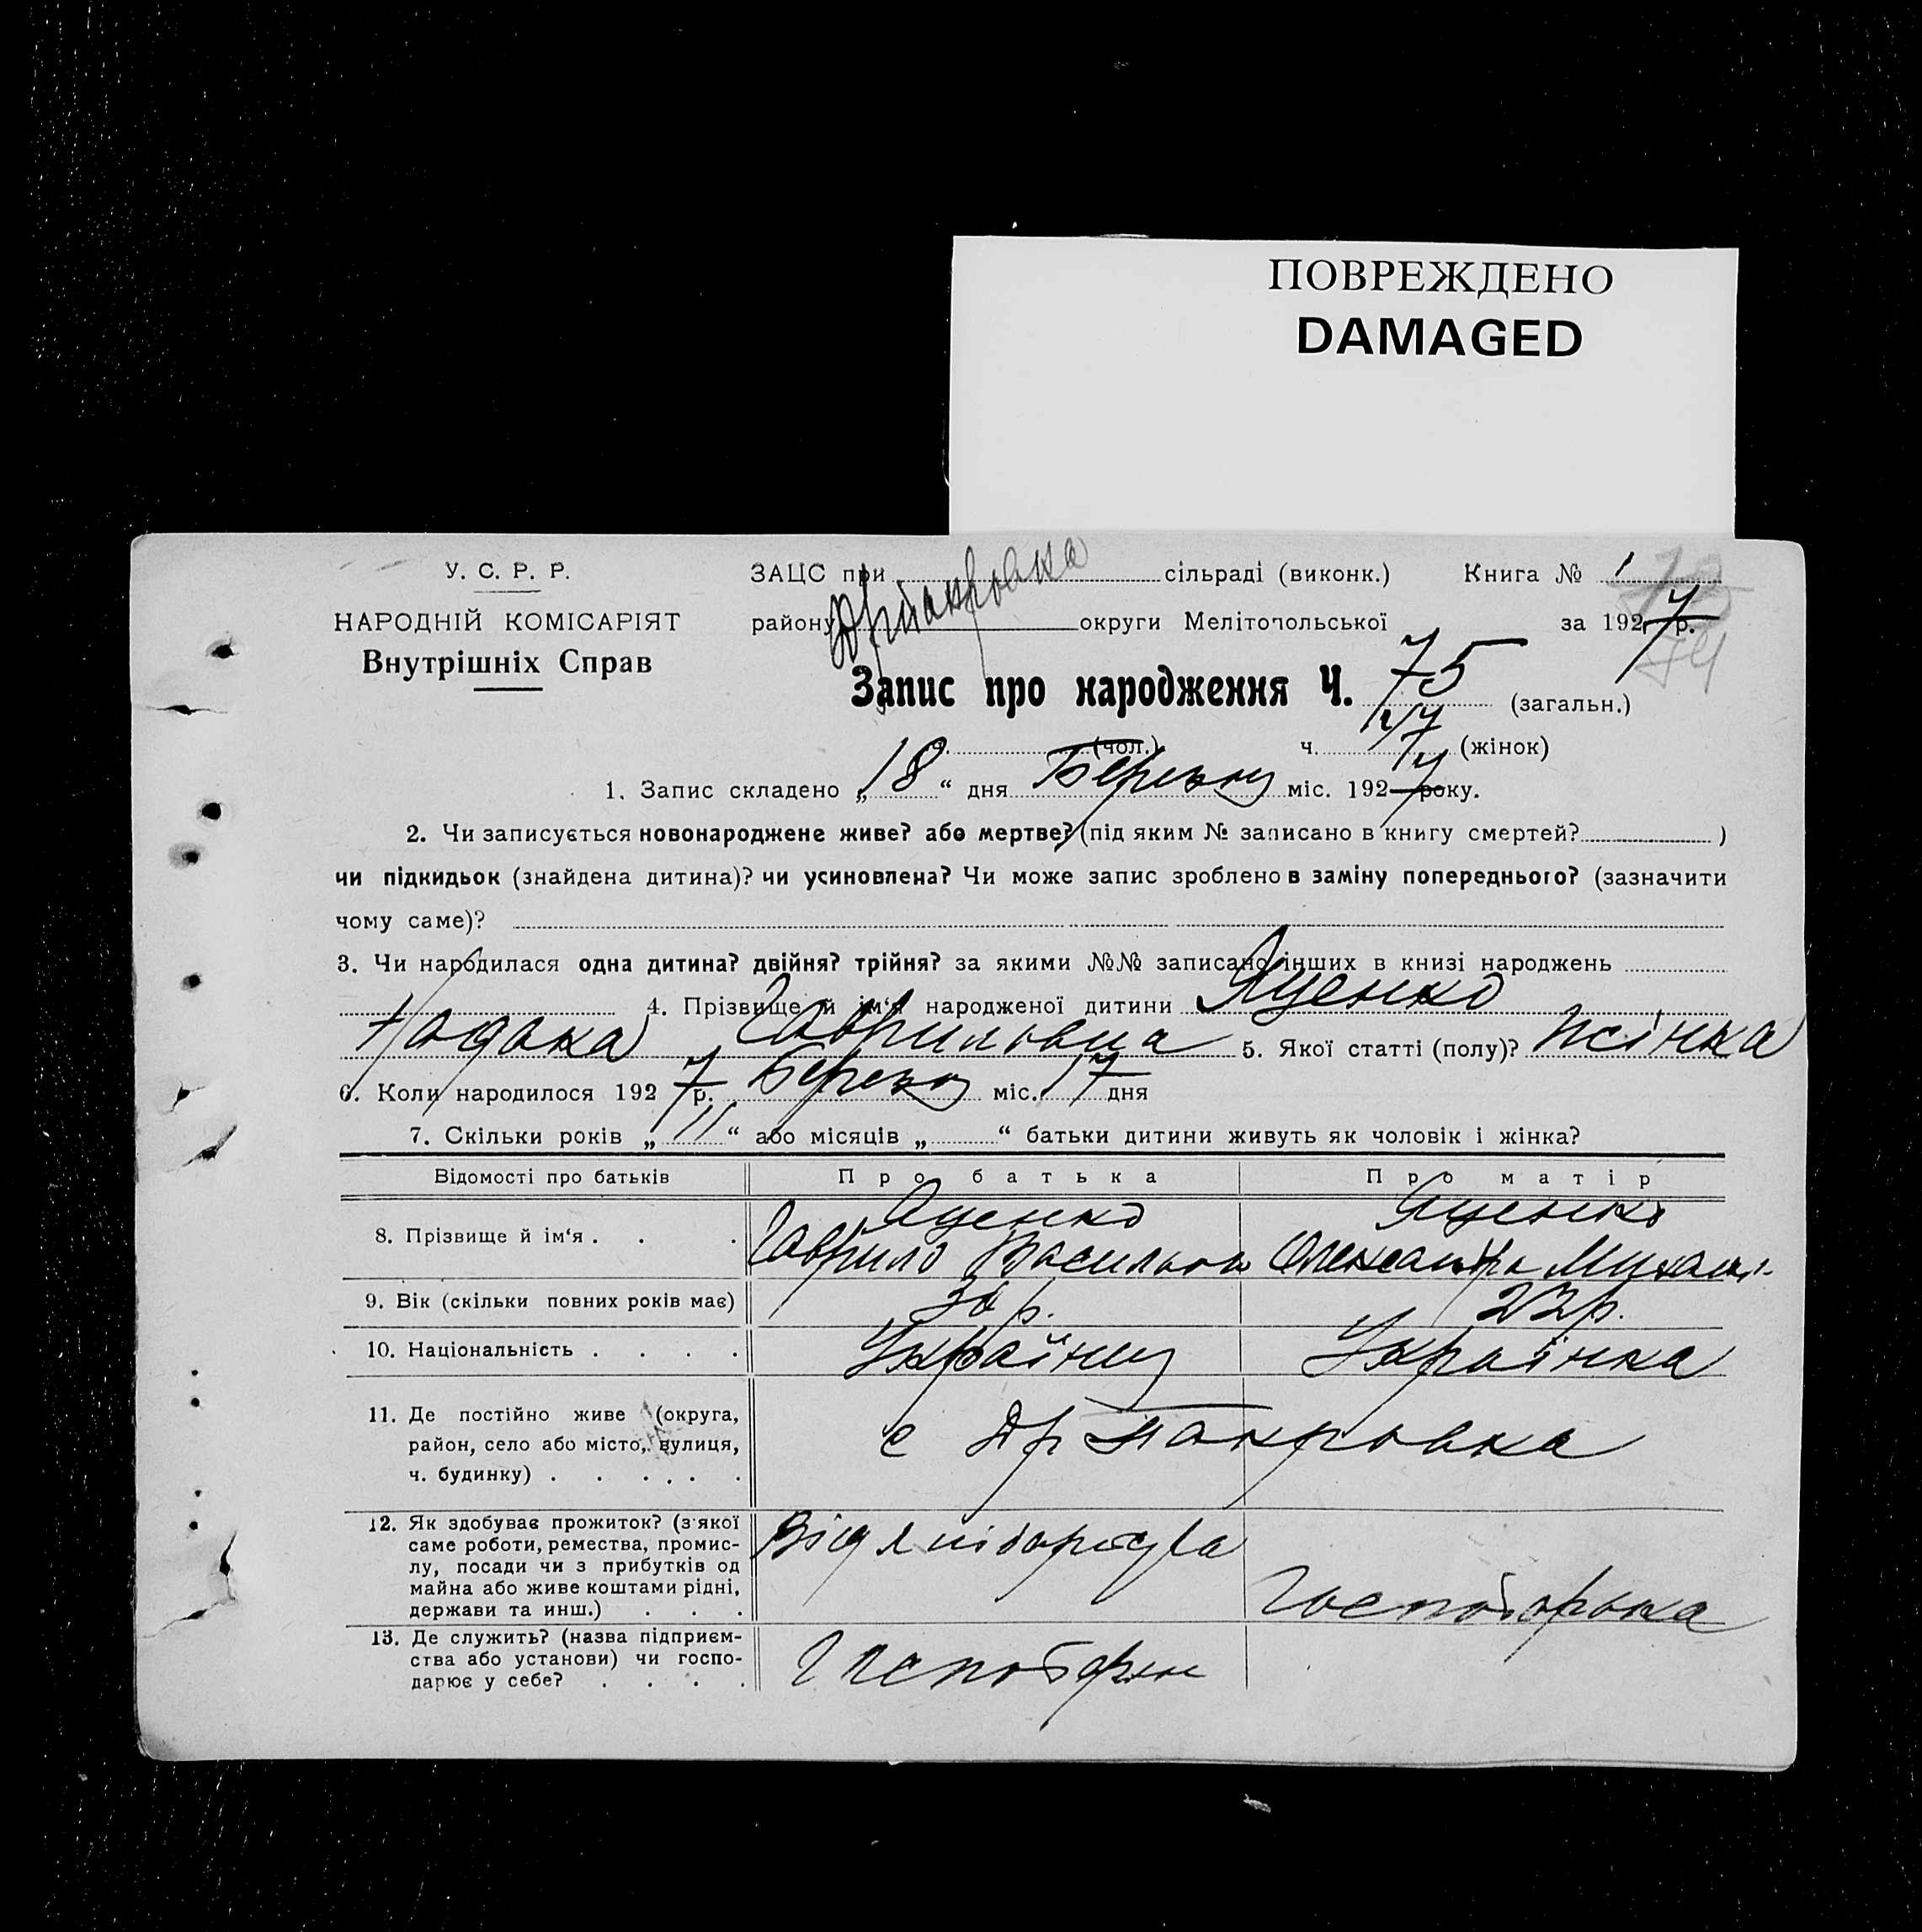 ПОВРЕЖДЕНО
DAMAGED
У. С. Р. Р.
НАРОДНІЙ КОМІСАРІЯТ
Внутрішніх Справ
ЗАЦС при сільраді (виконк.) Книга № 1
району округи Мелітопольської за 1927 р.
74
Запис про народження Ч. 75 (загальн.)
(чол.) ч. 47 (жінок)
1. Запис складено „ 18 “ дня Березня міс. 1927 року.
2. Чи записується новонароджене живе? або мертве? (під яким № записано в книгу смертей? )
чи підкидьок (знайдена дитина)? чи усиновлена? Чи може запис зроблено в заміну попереднього? (зазначити
чому саме)?
3. Чи народилася одна дитина? двійня? трійня? за якими №№ записано інших в книзі народжень
4. Прізвище й ім‘я народженої дитини Яценко
Гавриловна 5. Якої статті (полу)? жінка
6. Коли народилося 1927 р. Березня міс. 17 дня
7. Скільки років „ 11 “ або місяців „ “ батьки дитини живуть як чоловік і жінка?
Відомості про батьків Про батька Про матір
8. Прізвище й ім‘я . . . Яценко Яценко
Гаврило Васильов Олександра Михайл.
9. Вік (скільки повних років має) 30 р. 22р.
10. Національність . . . . Українец Українка
11. Де постійно живе (округа,
район, село або місто, вулиця,
ч. будинку) . . . . . .
с
12. Як здобуває прожиток? (з якої
саме роботи, ремества, промис-
лу, посади чи з прибутків од
майна або живе коштами рідні,
держави та инш.) . . .
Від хліборобства
Господарька
13. Де служить? (назва підприєм-
ства або установи) чи госпо-
дарює у себе? . . . .